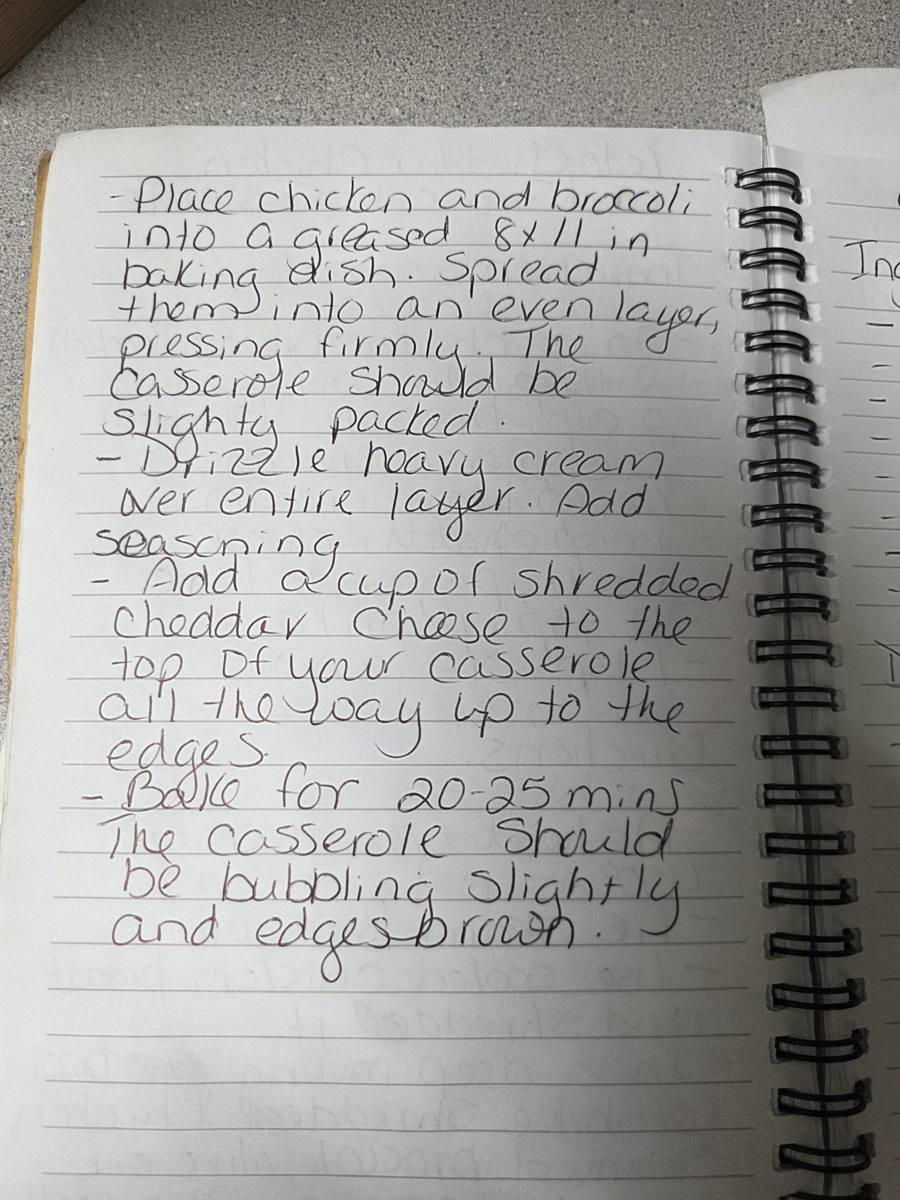 - Place chicken and broccoli
into a greased 8x11 in
baking dish. Spread
them into an even layer,
pressing firmly. The
casserole should be
slighty packed.
- Drizzle heavy cream
over entire layer. Add
seasoning
- Add a cup of shredded
Cheddar Cheese to the
top of your casserole
all the way up to the
edges.
- Bake for 20-25 mins
The casserole should
be bubbling slightly
and edges brown.